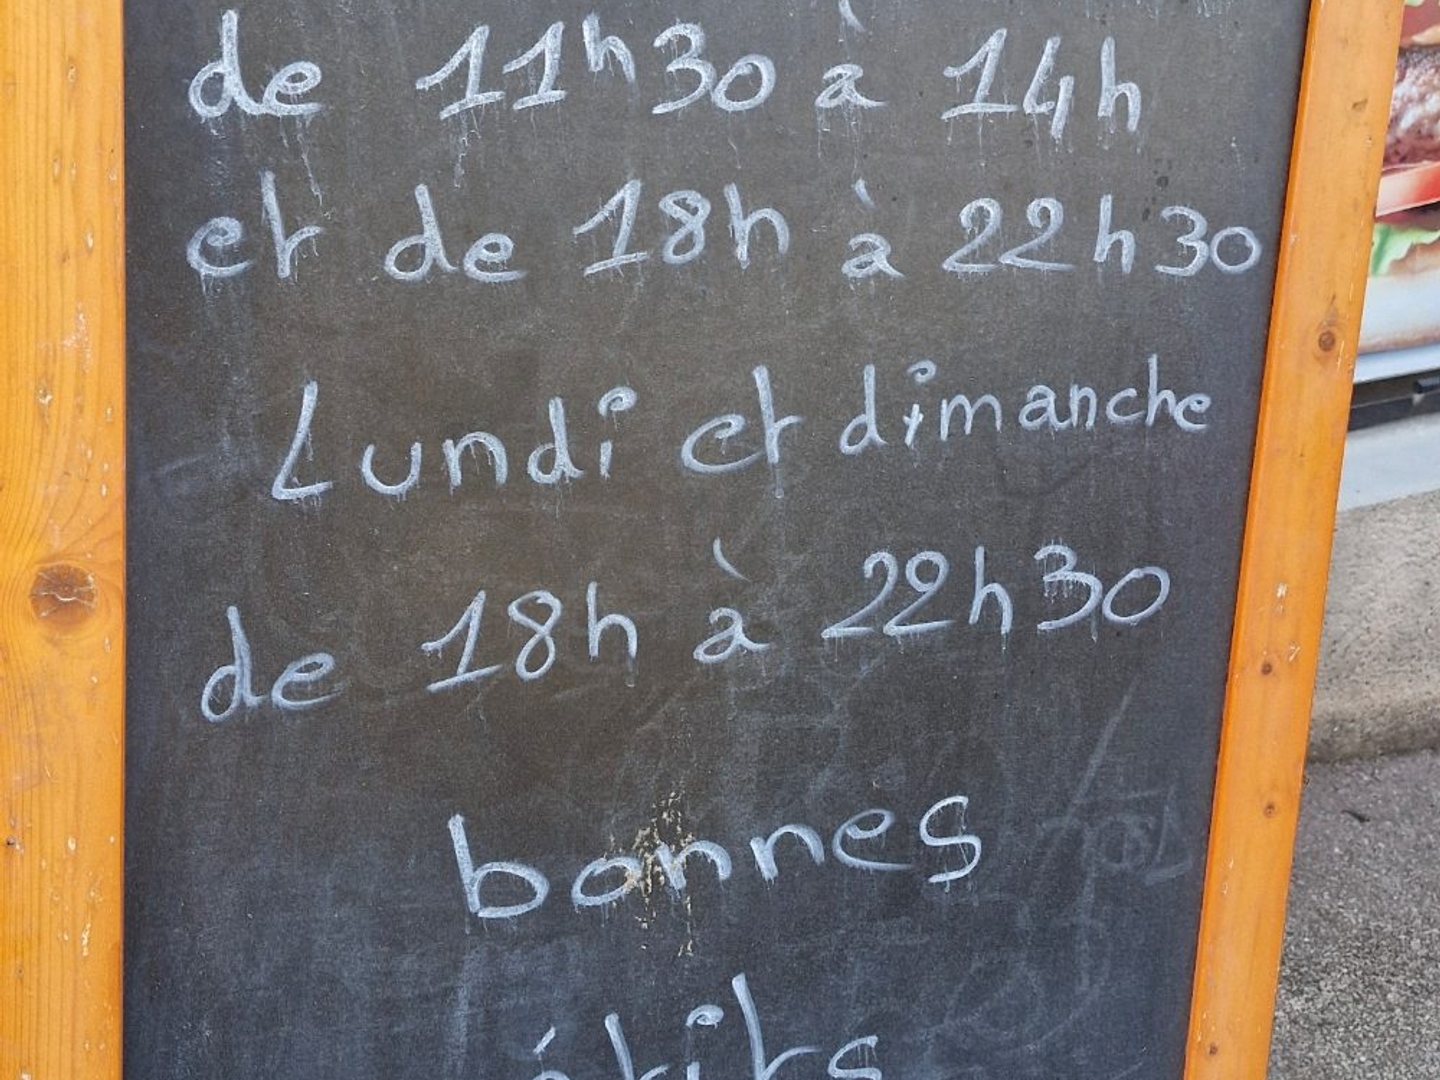 de 11h30 à 14h
et de 18h à 22h30
Lundi et dimanche
de 18h à 22h30
bonnes